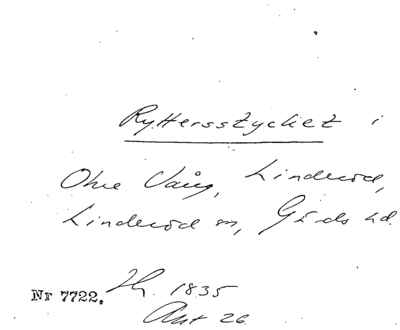 Ryttersstycket i
Ohre Vång, Linderöd,
Linderöd sn, Gärds hd.
Nr 7722. Zh. 1835
Akt 26.